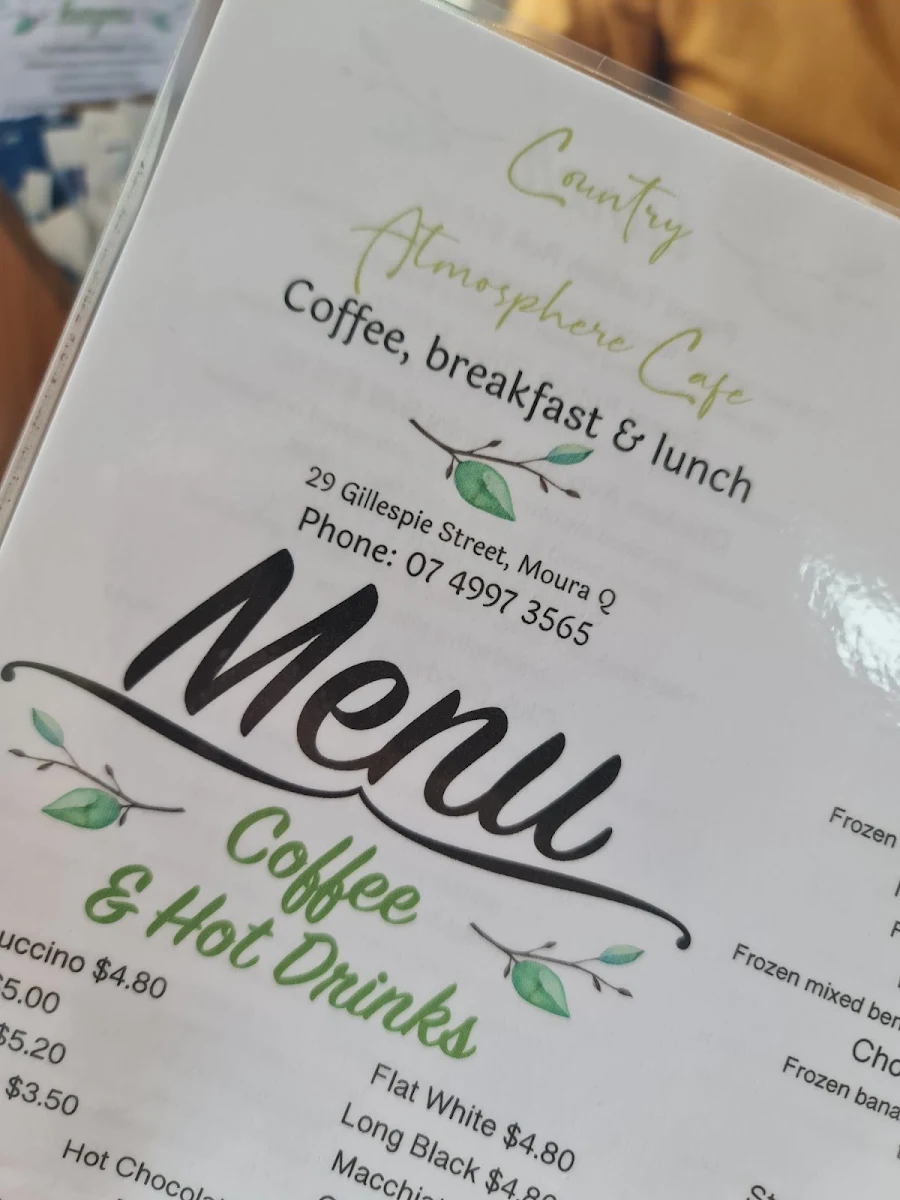 Country
Atmosphere Cafe
Coffee, breakfast & lunch
29 Gillespie Street, Moura Q
Phone: 07 4997 3565
Menu
Coffee
& Hot Drinks
uccino $4.80
$5.00
$5.20
$3.50
Hot Chocola
Flat White $4.80
Long Black $4.80
Macchia
Frozen
Frozen mixed ber
Cho
Frozen bana